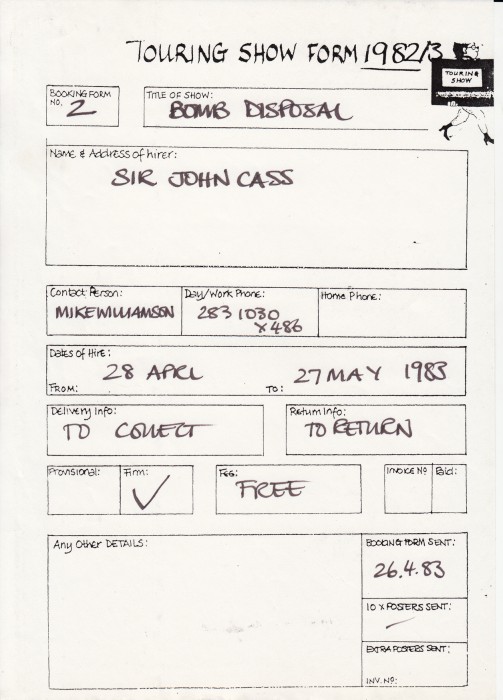 TOURING SHOW FORM 1982/3
TOURING
SHOW
BOOKING FORM
NO. 2
TITLE OF SHOW:
BOMB DISPOSAL
Name & Address of hirer:
SIR JOHN CASS
Contact Person:
MIKE WILLIAMSON
Day/Work Phone:
283 1030
x 486
Home Phone:
Dates of Hire:
FROM: 28 APRL TO: 27 MAY 1983
Delivery Info:
TO COLLECT
Return Info:
TO RETURN
Provisional:
Firm:
✓
Fee:
FREE
INVOICE Nº
Paid:
Any Other DETAILS:
BOOKING FORM SENT:
26.4.83
10 x POSTERS SENT:
EXTRA POSTERS SENT:
INV. Nº: